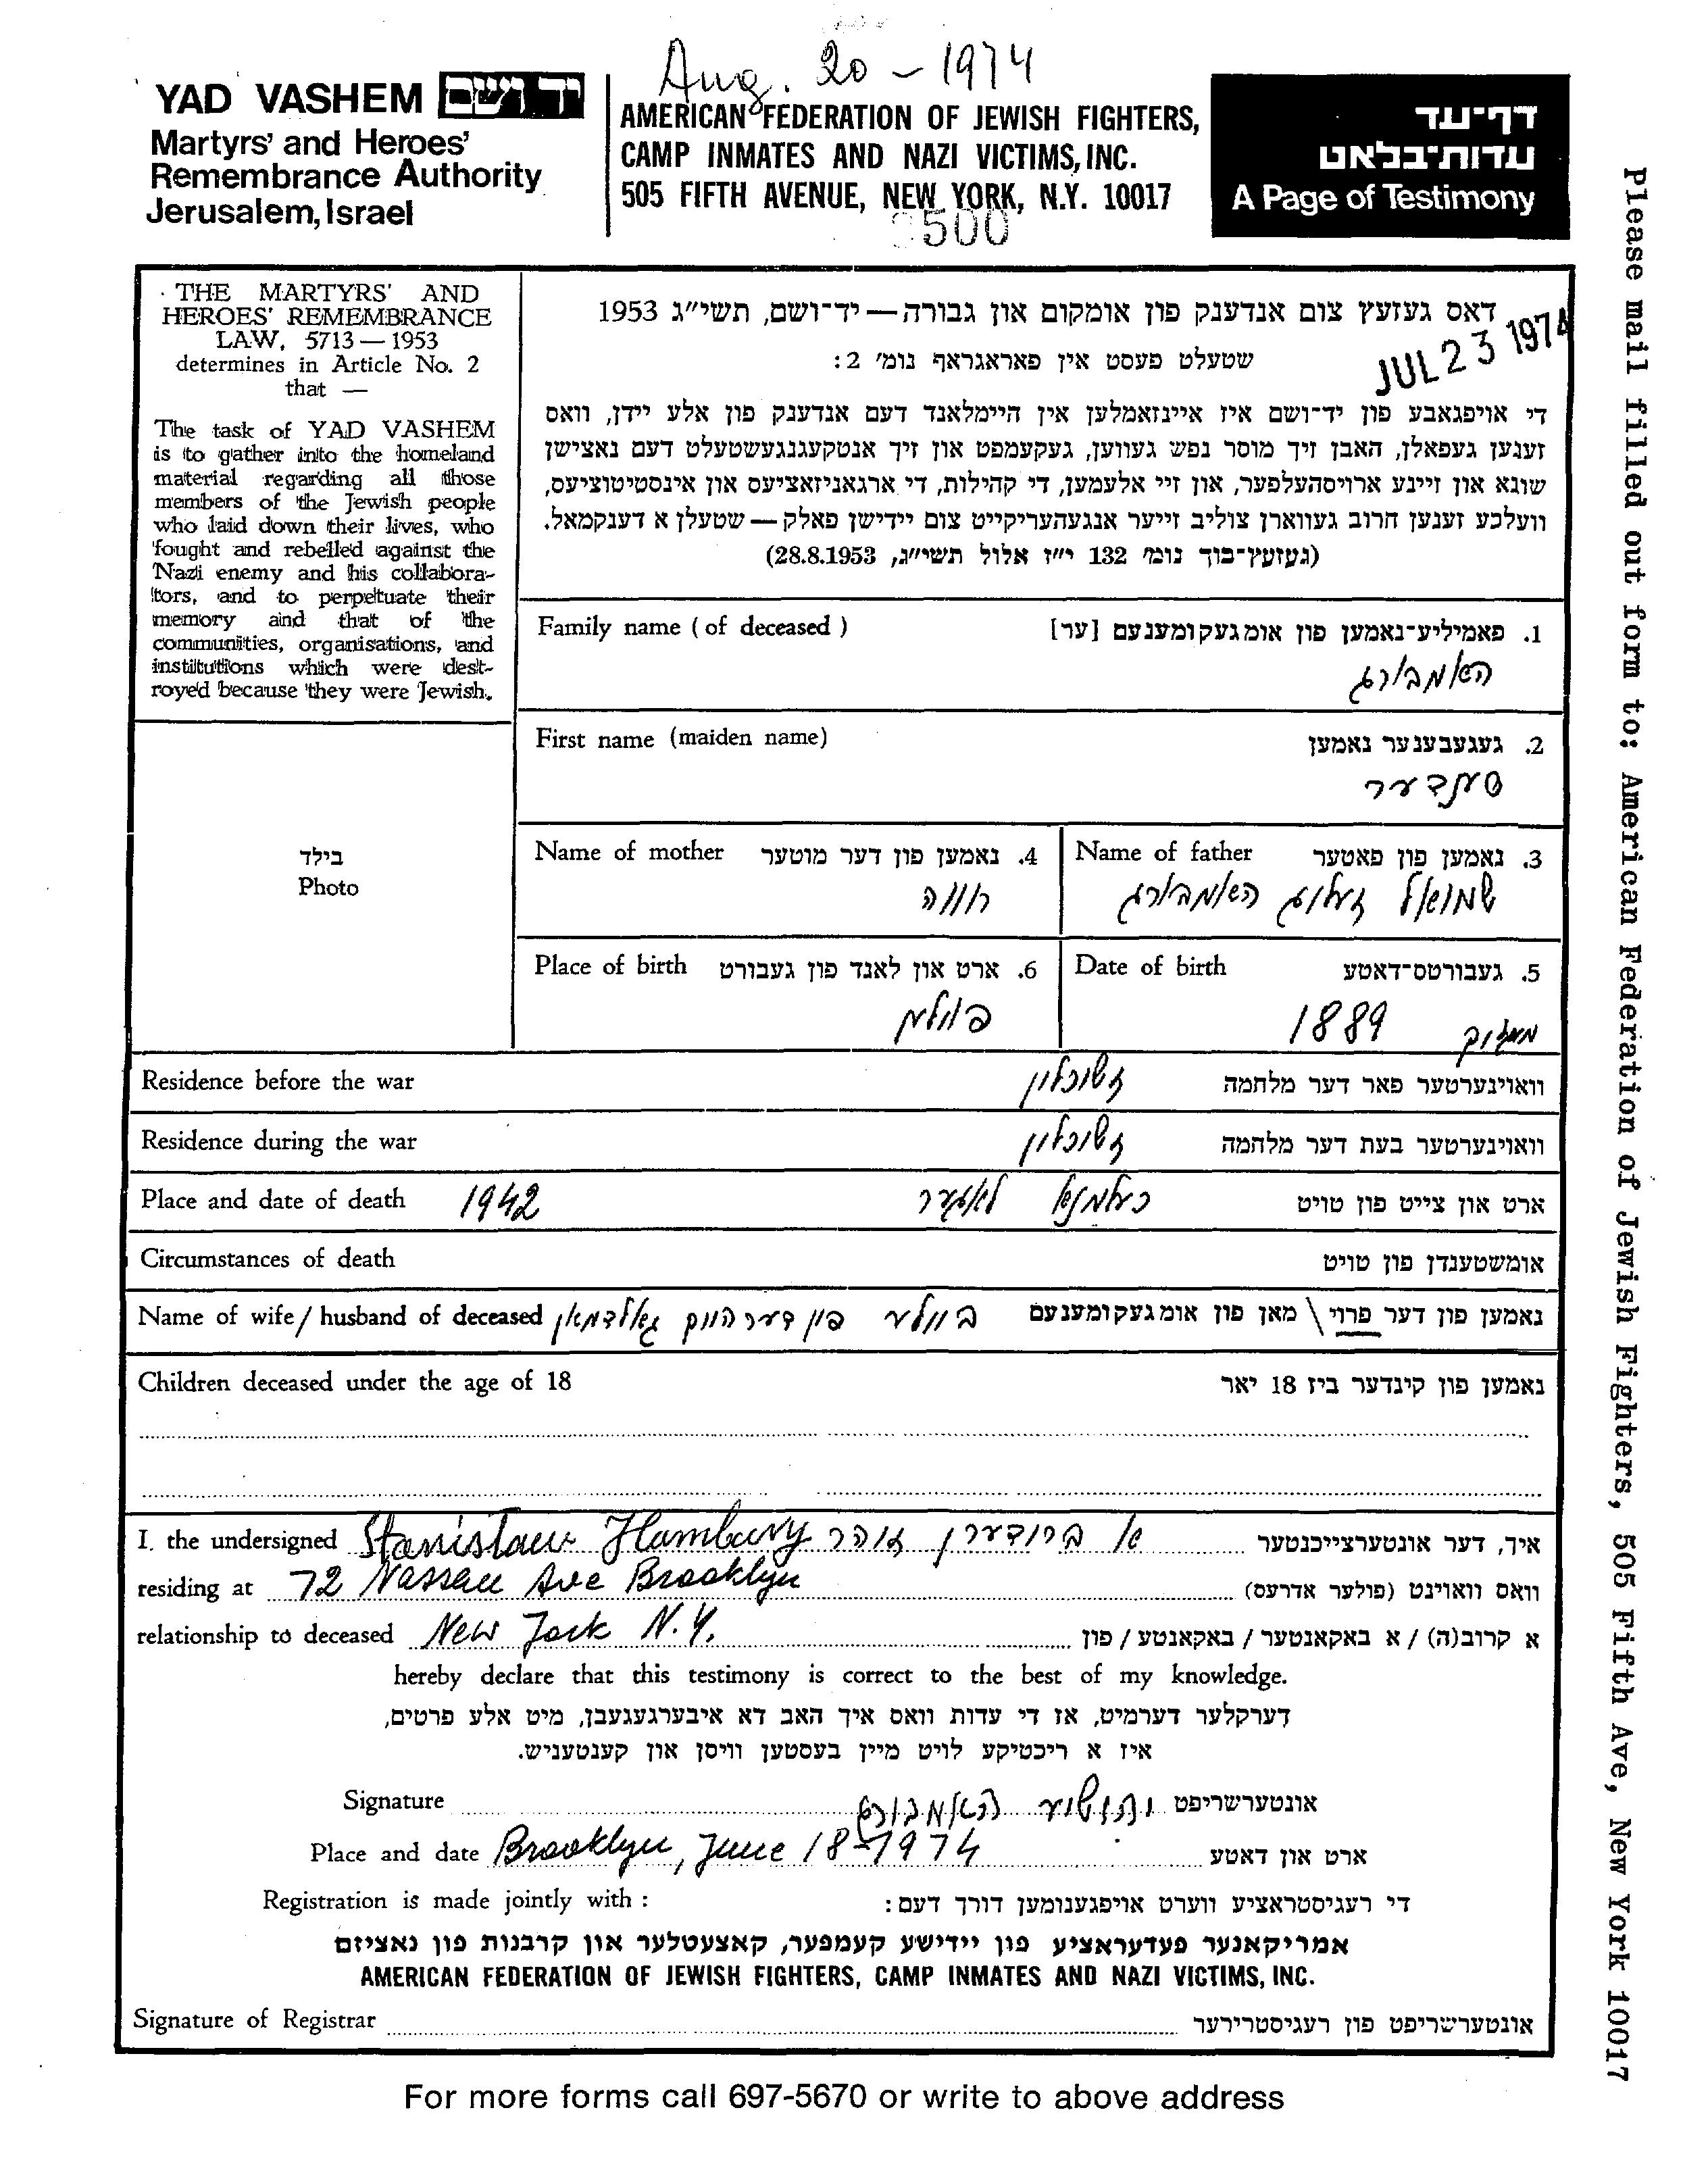 Aug. 20 - 1974
YAD VASHEM יד ושם
Martyrs' and Heroes'
Remembrance Authority
Jerusalem, Israel
AMERICAN FEDERATION OF JEWISH FIGHTERS,
CAMP INMATES AND NAZI VICTIMS, INC.
505 FIFTH AVENUE, NEW YORK, N.Y. 10017
500
דף־עד
עדות־בלאט
A Page of Testimony
THE MARTYRS' AND
HEROES' REMEMBRANCE
LAW, 5713 — 1953
determines in Article No. 2
that —
The task of YAD VASHEM
is to gather into the homeland
material regarding all those
members of the Jewish people
who laid down their lives, who
fought and rebelled against the
Nazi enemy and his collabora-
tors, and to perpetuate their
memory and that of the
communities, organisations, and
institutions which were dest-
royed because they were Jewish.
דאס געזעץ צום אנדענק פון אומקום און גבורה — יד־ושם, תשי״ג 1953
JUL 23 1974
שטעלט פעסט אין פאראגראף נומ׳ 2:
די אויפגאבע פון יד־ושם איז איינזאמלען אין היימלאנד דעם אנדענק פון אלע יידן, וואס
זענען געפאלן, האבן זיך מוסר נפש געווען, געקעמפט און זיך אנטקעגנגעשטעלט דעם נאצישן
שונא און זיינע ארויסהעלפער, און זיי אלעמען, די קהילות, די ארגאניזאציעס און אינסטיטוציעס,
וועלכע זענען חרוב געווארן צוליב זייער אנגעהעריקייט צום יידישן פאלק — שטעלן א דענקמאל.
(געזעץ־בוך נומ׳ 132 י״ז אלול תשי״ג, 28.8.1953)
Family name (of deceased) 1. פאמיליע־נאמען פון אומגעקומענעם [ער]
האמבורג
First name (maiden name) 2. געגעבענער נאמען
סענדער
בילד
Photo
Name of father 3. נאמען פון פאטער
שמואל זעליג האמבורג
Name of mother 4. נאמען פון דער מוטער
חווה
Date of birth 5. געבורטס־דאטע
1889
Place of birth 6. ארט און לאנד פון געבורט
פוילען
Residence before the war וואוינערטער פאר דער מלחמה
Residence during the war וואוינערטער בעת דער מלחמה
Place and date of death 1942 כעלמנא לאגער ארט און צייט פון טויט
Circumstances of death אומשטענדן פון טויט
Name of wife / husband of deceased ביילע פון דער היים גאלדמאן נאמען פון דער פרוי \ מאן פון אומגעקומענעם
Children deceased under the age of 18 נאמען פון קינדער ביז 18 יאר
I, the undersigned Stanislaw Hamburg א ברודערן זוהר איך, דער אונטערצייכנטער
residing at 72 Nassau Ave Brooklyn וואס וואוינט (פולער אדרעס)
relationship to deceased New York N.Y. א קרוב(ה) / א באקאנטער / באקאנטע / פון
hereby declare that this testimony is correct to the best of my knowledge.
דערקלער דערמיט, אז די עדות וואס איך האב דא איבערגעגעבן, מיט אלע פרטים,
איז א ריכטיקע לויט מיין בעסטען וויסן און קענטעניש.
Signature יהושע האמבורג אונטערשריפט
Place and date Brooklyn, June 18-1974 ארט און דאטע
Registration is made jointly with: די רעגיסטראציע ווערט אויפגענומען דורך דעם:
אמריקאנער פעדעראציע פון יידישע קעמפער, קאצעטלער און קרבנות פון נאציזם
AMERICAN FEDERATION OF JEWISH FIGHTERS, CAMP INMATES AND NAZI VICTIMS, INC.
Signature of Registrar אונטערשריפט פון רעגיסטרירער
For more forms call 697-5670 or write to above address
Please mail filled out form to: American Federation of Jewish Fighters, 505 Fifth Ave, New York 10017